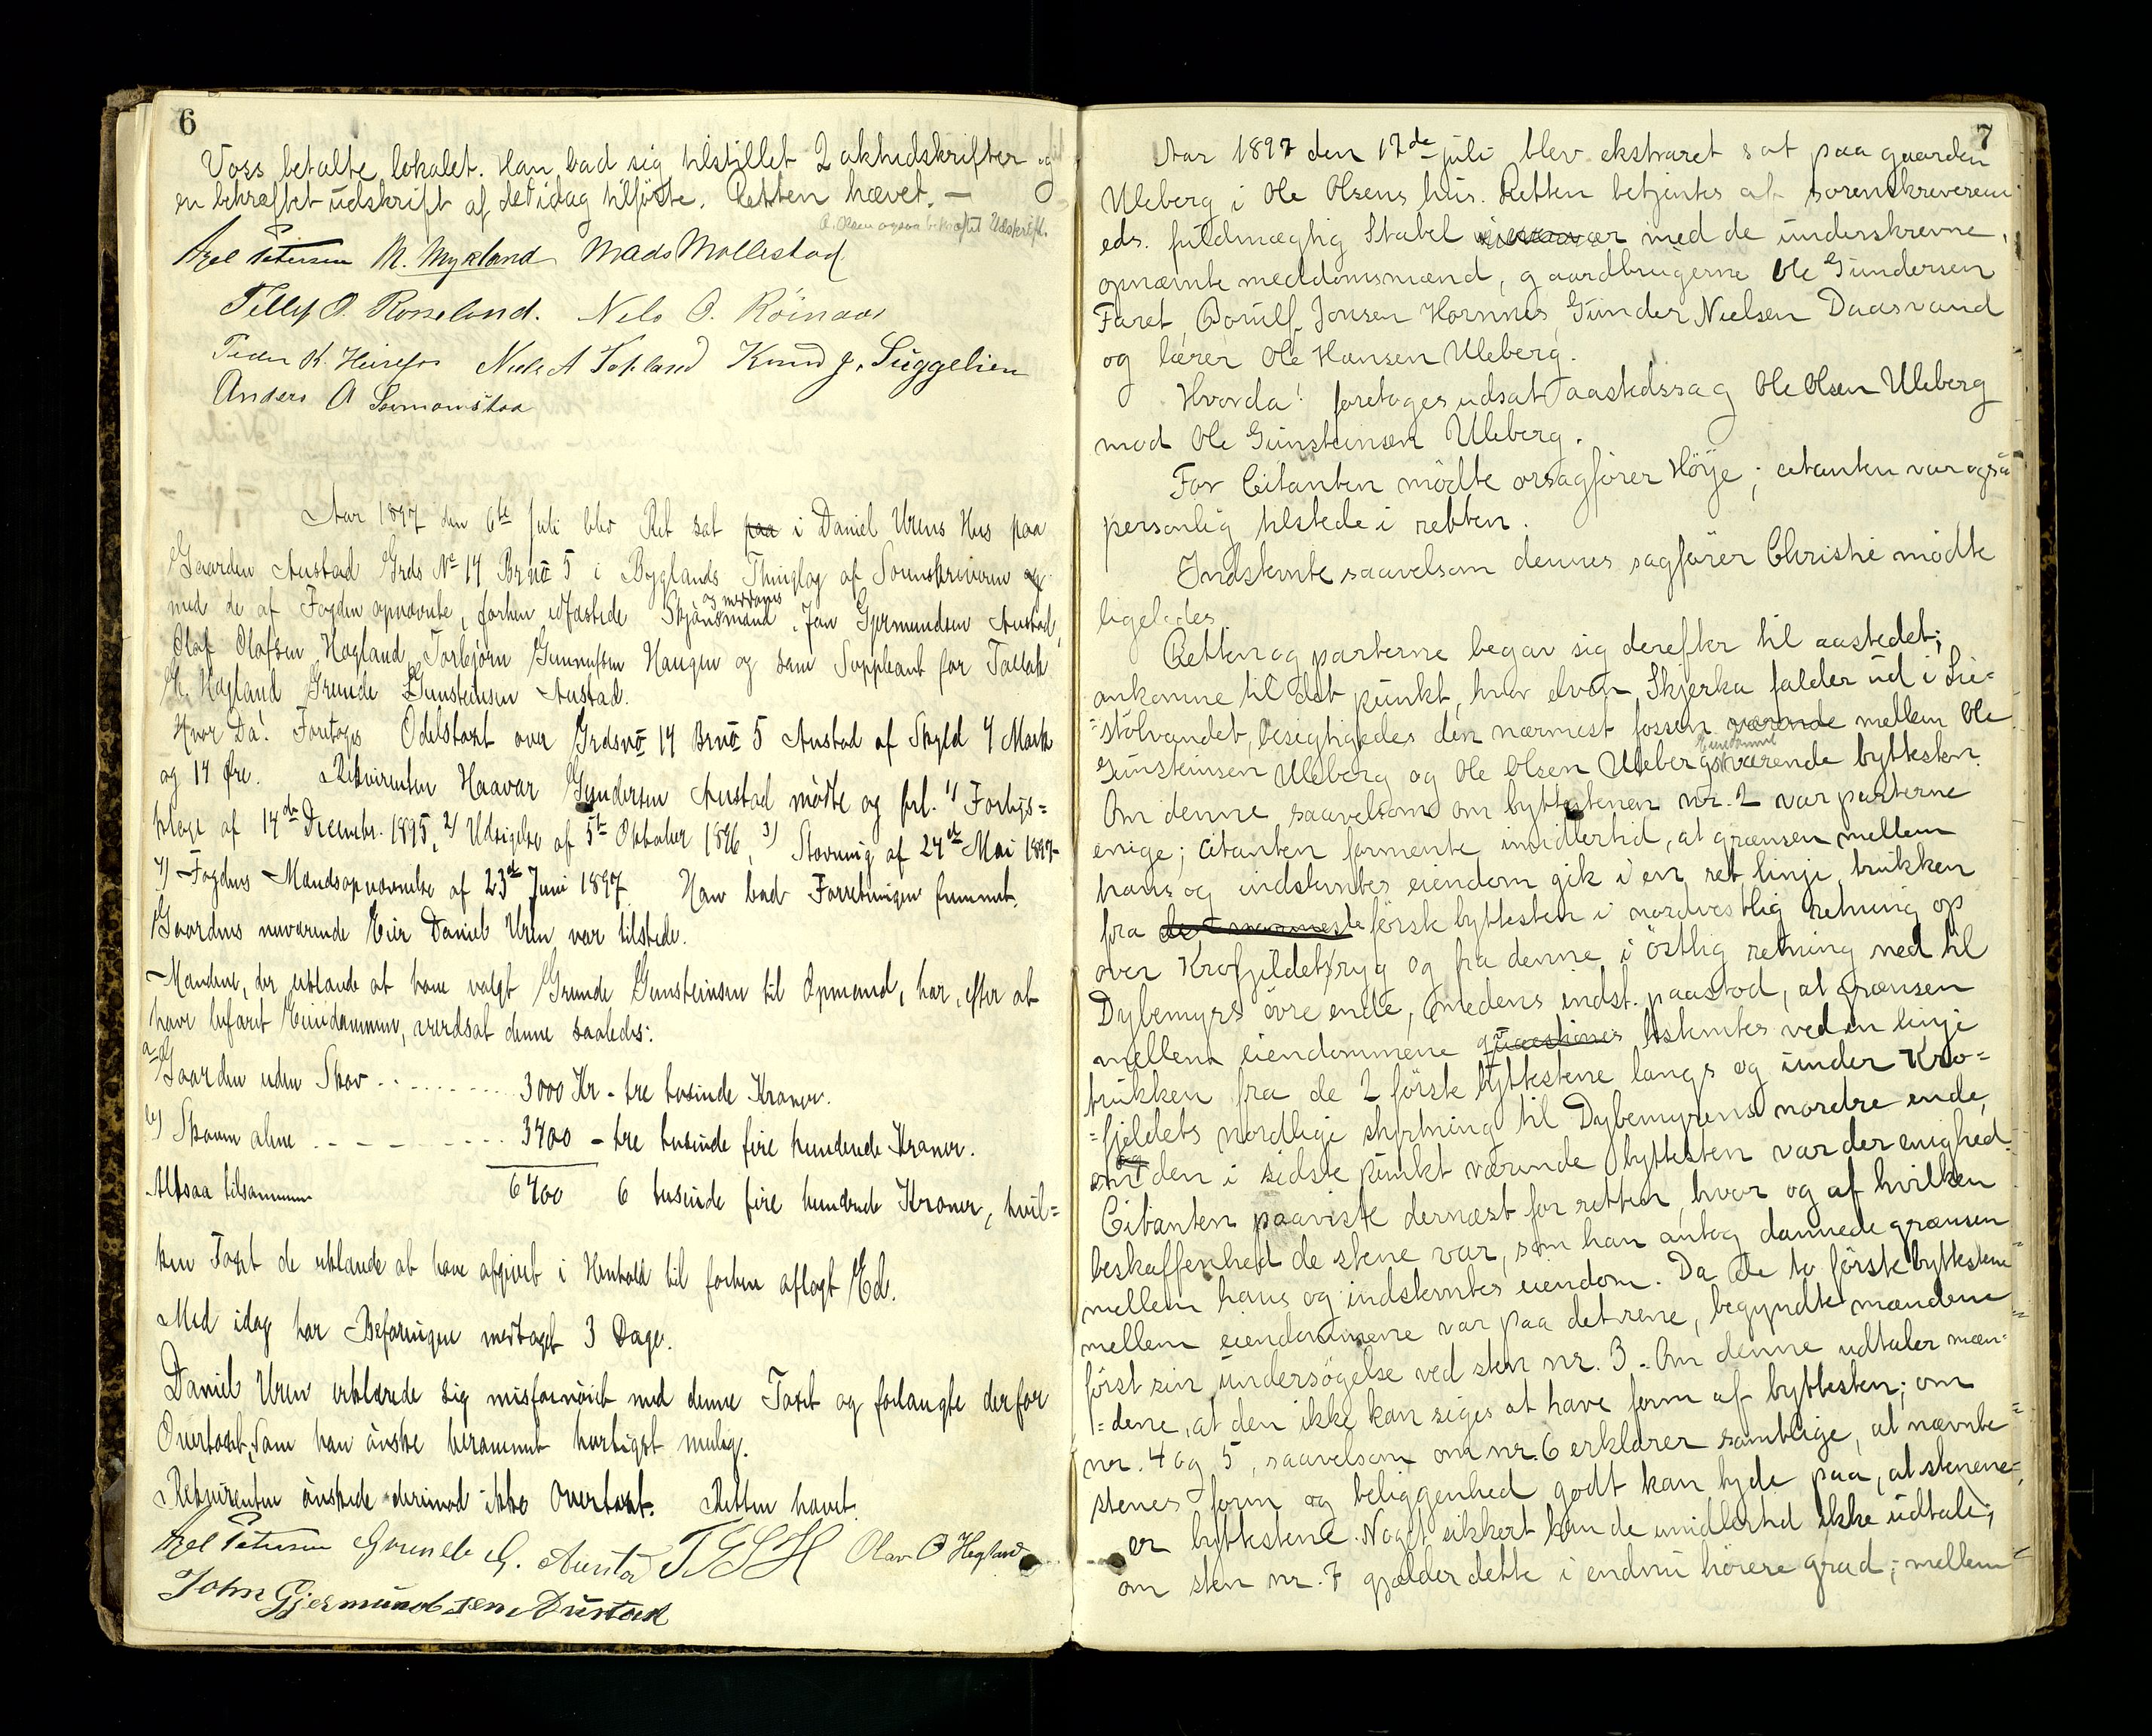 6
Voss betalte lokalet. Han bad sig tilstillet 2 aktudskrifter og
en bekræftet udskrift af det idag tilførte. Retten hævet. —
O. Olsen ogsaa bekræftet Udskrift.
Axel Petersen M. Mykland Mads Mollestad
Tellef O. Rosseland. Nils O. Röinaas
Niels A Topland Knud J.
Anders A
Aar 1897 den 6te Juli blev Ret sat paa i Daniel Urens Hus paa
Gaarden Austad Grds No 14 Brno 5 i Byglands Thinglag af Sorenskriveren og
med de af Fogden opnævnte, forhen edfæstede Skjöns og meddomsmænd, Jon Gjermundsen Austad,
Olaf Olafsen Hegland, Torbjörn Gunnufsen Haugen og som Suppleant for Tallak
G. Hegland Grunde Gunsteinsen Austad.
Hvor Da! Foretoges Odelstaxt over Grdsno 14 Brno 5 Austad af Skyld 4 Mark
og 14 Øre. Rekvirenten Haavar Gundersen Austad mødte og frl. 1) Forligs=
klage af 14de Decembr. 1895, 2) Udsigelse af 5te Oktober 1896, 3) Stævning af 24de Mai 1897
4) Fogdens Mandsopnævnelse af 23de Juni 1897. Han bad Forretningen fremmet.
Gaardens nuværende Eier Daniel Uren var tilstede.
Mændene, der erklærede at have valgt Grunde Gunsteinsen til Opmand, har, efter at
have befaret Eiendommen, værdsat denne saaledes:
a) Gaarden uden Skov - - - - - - - - - 3000 Kr - tre tusinde Kroner.
b) Skoven alene - - - - - - - - - 3400 - tre tusinde fire hundrede Kroner.
Altsaa tilsammen 6400 6 tusinde fire hundrede Kroner, hvil=
ken Taxt de erklærede at have afgivet i Henhold til forhen aflagt Ed.
Med idag har Befaringen medtaget 3 Dage.
Daniel Uren erklærede sig misfornöiet med denne Taxt og forlangte derfor
Overtaxt, som han önskede berammet hurtigst mulig.
Rekvirenten önskede derimod ikke Overtaxt. Retten hævet.
Axel Petersen Grunde G. Austad T G S H Olav O Hegland
John Gjermundsen Austad
7
Aar 1897 den 17de juli blev ekstraret sat paa gaarden
Uleberg i Ole Olsens hus. Retten betjentes af sorenskriveren
eds. fuldmægtig Stabel med de underskrevne,
opnævnte meddomsmænd, gaardbrugerne Ole Gundersen
Faret, Torulf Jonsen Hornnes, Gunder Nielsen Daasvand
og lærer Ole Hansen Uleberg.
Hvorda! foretoges udsat aastedssag Ole Olsen Uleberg
mod Ole Gunsteinsen Uleberg.
For Citanten mödte orsagfører Höye; citanten var også
personlig tilstede i retten.
Indstevnte saavelsom dennes sagfører Christie mødte
ligeledes.
Retten og parterne begav sig derefter til aastedet;
ankomne til det punkt, hvor elven Skjerka falder ud i Lie=
=stölvandet, besigtigedes den nærmest fossen værende mellem Ole
Gunsteinsen Uleberg og Ole Olsen Ulebergs Eiendomme værende byttesten.
Om denne, saavelsom om byttestenen nr. 2 var parterne
enige; citanten formente imidlertid, at grænsen mellem
hans og indstevntes eiendom gik i en ret linje trukken
fra den nærmeste förste byttesten i nordvestlig retning op
over Krofjeldets ryg og fra denne i östlig retning ned til
Dybemyrs övre ende, medens indst. paastod, at grænsen
mellem eiendommene quæstiones bestemtes ved en linje
trukken fra de 2 förste byttestene langs og under Kro=
=fjeldets nordlige styrtning til Dybemyrens nordre ende,
og om den i sidste punkt værende byttesten var der enighed.
Citanten paaviste dernæst for retten, hvor og af hvilken
beskaffenhed de stene var, som han antog dannede grænsen
mellem hans og indstevntes eiendom. Da de to förste byttestene
mellem eiendommene var paa det rene, begyndte mændene
först sin undersögelse ved sten nr. 3. Om denne udtaler mæn=
=dene, at den ikke kan siges at have form af byttesten; om
nr. 4 og 5, saavelsom om nr. 6 erklærer samtlige, at nævnte
stenes form og beliggenhed godt kan tyde paa, at stenene
er byttestene. Noget sikkert kan de imidlertid ikke udtale;
om sten nr. 7 gjælder dette i endnu höiere grad; mellem